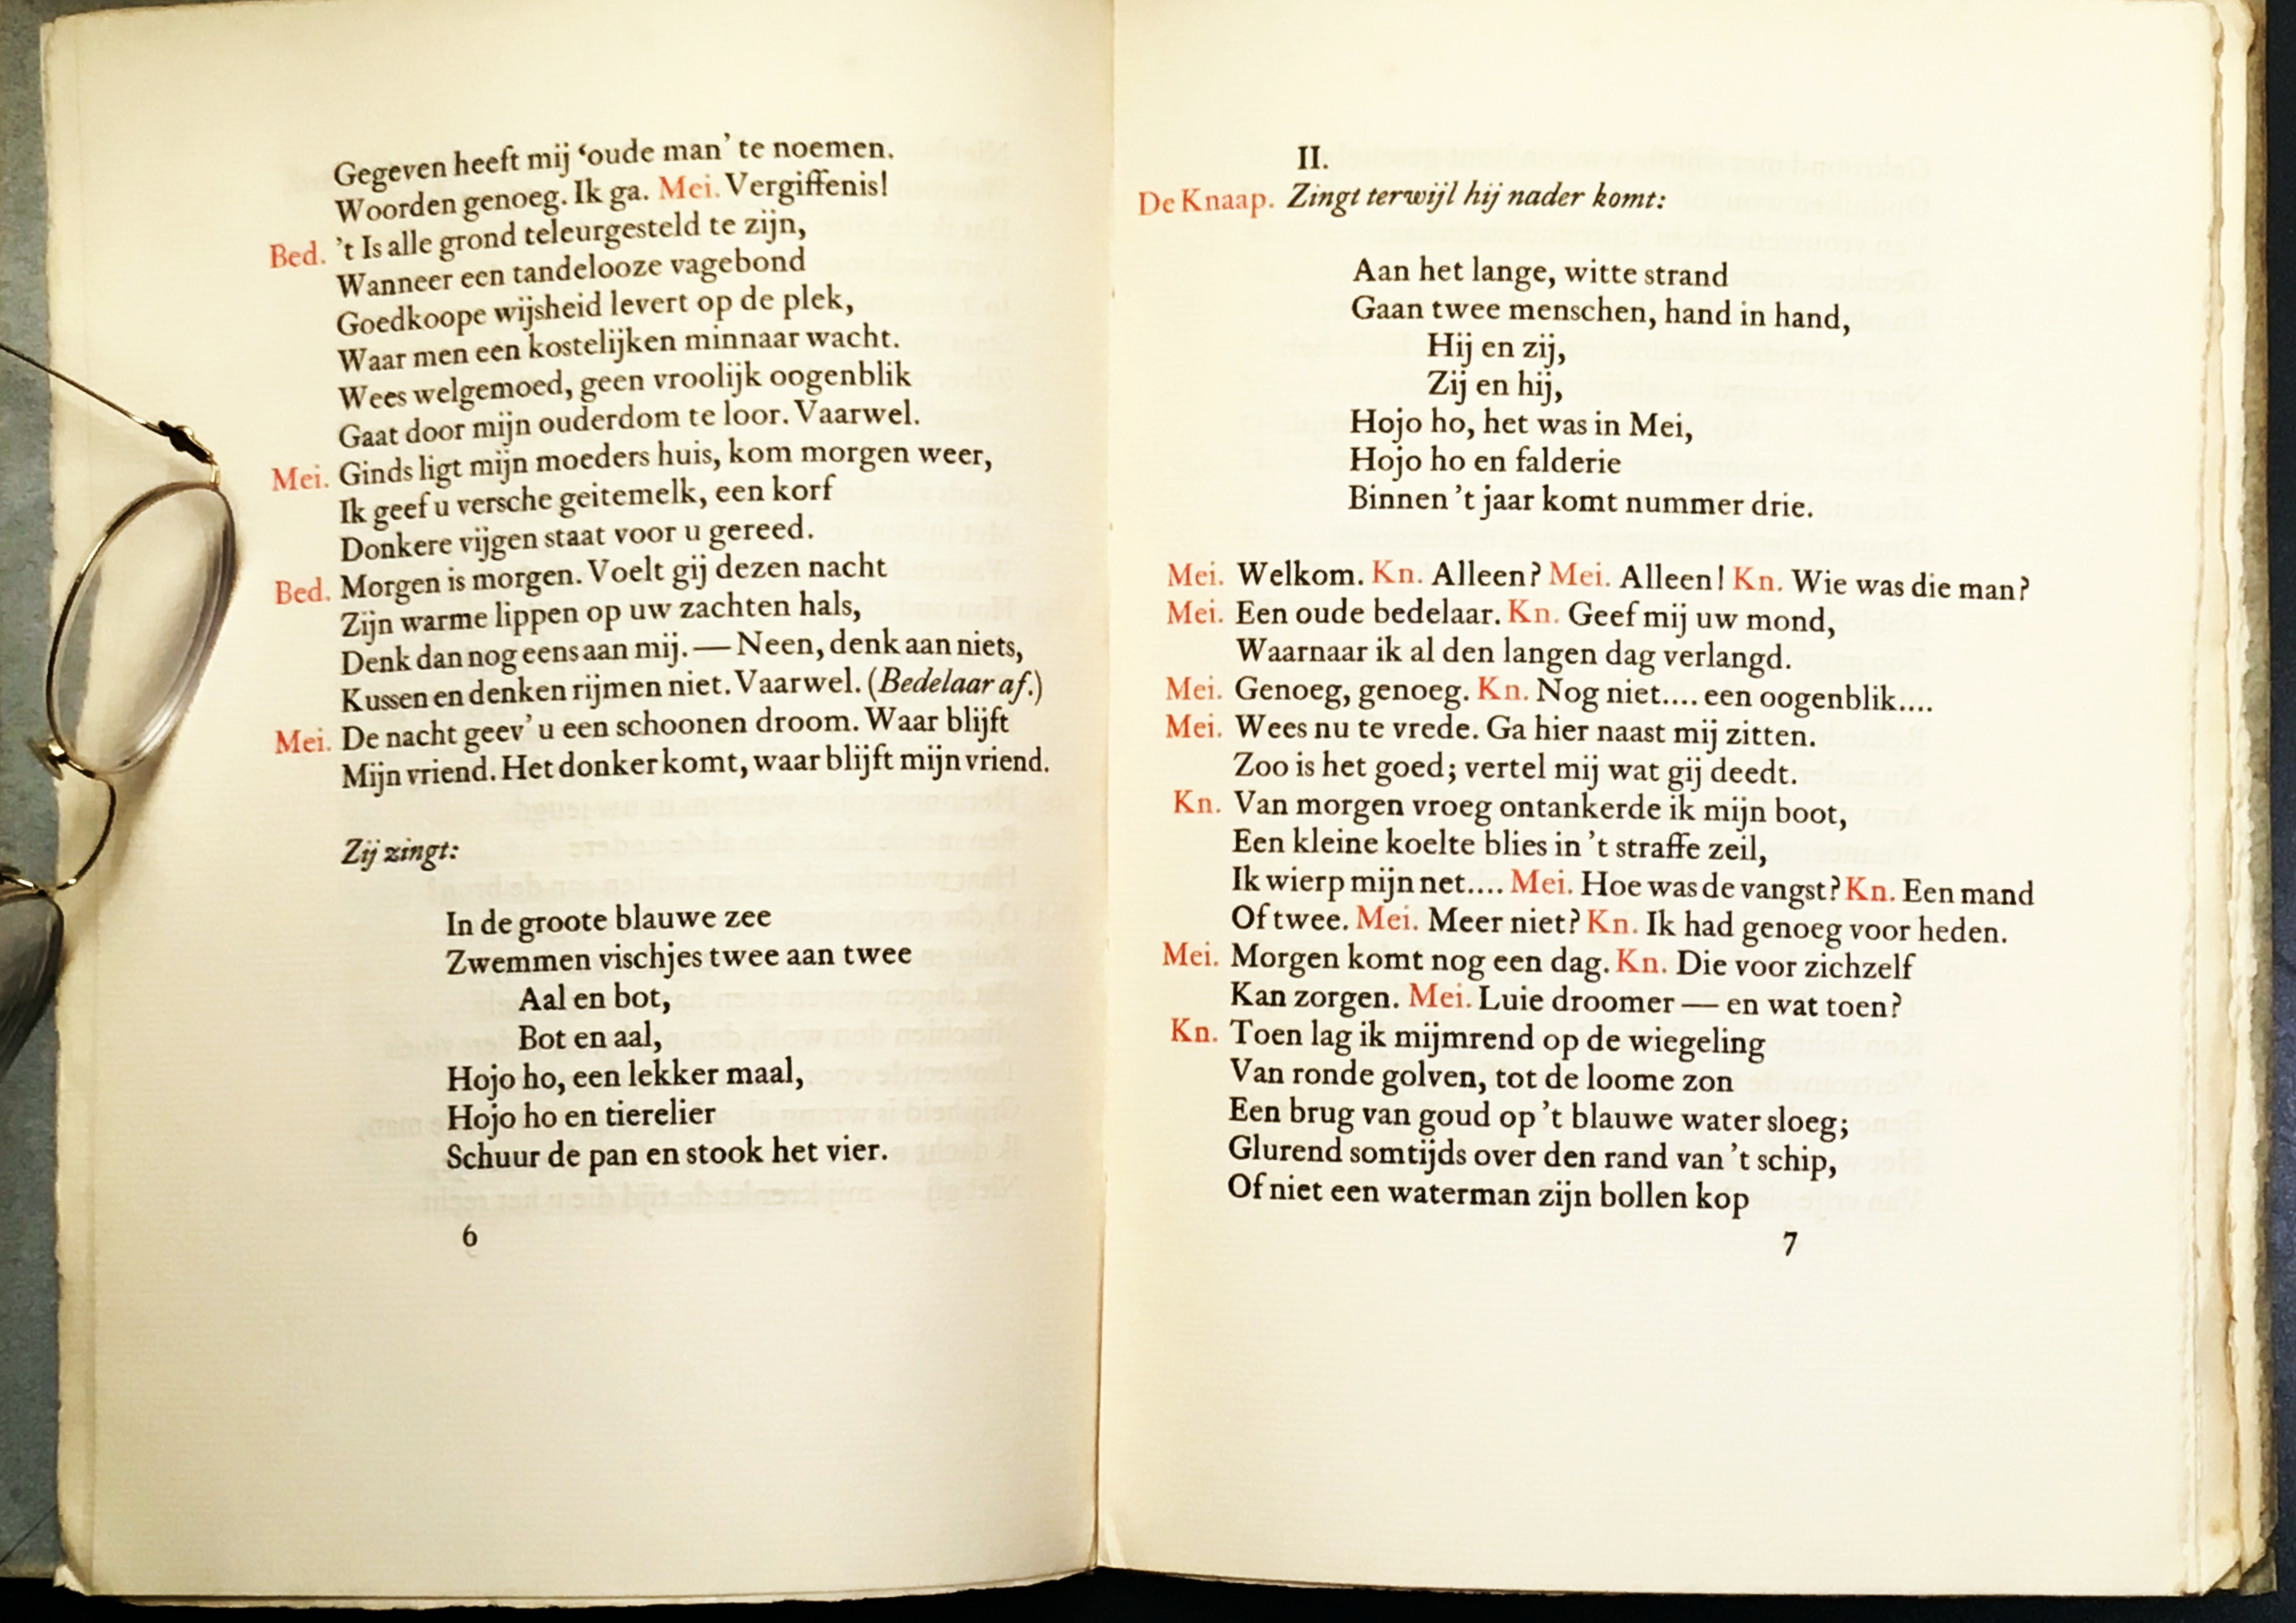 Gegeven heeft mij ‘oude man’ te noemen.
Woorden genoeg. Ik ga. Mei. Vergiffenis!
Bed. ’t Is alle grond teleurgesteld te zijn,
Wanneer een tandelooze vagebond
Goedkoope wijsheid levert op de plek,
Waar men een kostelijken minnaar wacht.
Wees welgemoed, geen vroolijk oogenblik
Gaat door mijn ouderdom te loor. Vaarwel.
Mei. Ginds ligt mijn moeders huis, kom morgen weer,
Ik geef u versche geitemelk, een korf
Donkere vijgen staat voor u gereed.
Bed. Morgen is morgen. Voelt gij dezen nacht
Zijn warme lippen op uw zachten hals,
Denk dan nog eens aan mij. — Neen, denk aan niets,
Kussen en denken rijmen niet. Vaarwel. (Bedelaar af.)
Mei. De nacht geev’ u een schoonen droom. Waar blijft
Mijn vriend. Het donker komt, waar blijft mijn vriend.
Zij zingt:
In de groote blauwe zee
Zwemmen vischjes twee aan twee
Aal en bot,
Bot en aal,
Hojo ho, een lekker maal,
Hojo ho en tierelier
Schuur de pan en stook het vier.
6
II.
De Knaap. Zingt terwijl hij nader komt:
Aan het lange, witte strand
Gaan twee menschen, hand in hand,
Hij en zij,
Zij en hij,
Hojo ho, het was in Mei,
Hojo ho en falderie
Binnen ’t jaar komt nummer drie.
Mei. Welkom. Kn. Alleen? Mei. Alleen! Kn. Wie was die man?
Mei. Een oude bedelaar. Kn. Geef mij uw mond,
Waarnaar ik al den langen dag verlangd.
Mei. Genoeg, genoeg. Kn. Nog niet.... een oogenblik....
Mei. Wees nu te vrede. Ga hier naast mij zitten.
Zoo is het goed; vertel mij wat gij deedt.
Kn. Van morgen vroeg ontankerde ik mijn boot,
Een kleine koelte blies in ’t straffe zeil,
Ik wierp mijn net.... Mei. Hoe was de vangst? Kn. Een mand
Of twee. Mei. Meer niet? Kn. Ik had genoeg voor heden.
Mei. Morgen komt nog een dag. Kn. Die voor zichzelf
Kan zorgen. Mei. Luie droomer — en wat toen?
Kn. Toen lag ik mijmrend op de wiegeling
Van ronde golven, tot de loome zon
Een brug van goud op ’t blauwe water sloeg;
Glurend somtijds over den rand van ’t schip,
Of niet een waterman zijn bollen kop
7